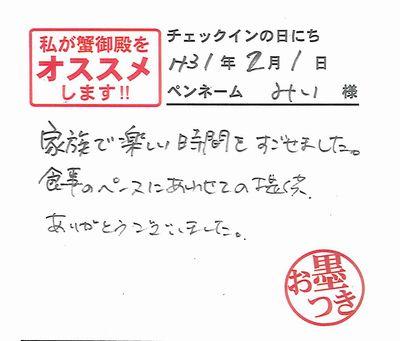 私が蟹御殿を
オススメ
します!!
チェックインの日にち
H31年2月1日
ペンネーム みい 様
家族で楽しい時間をすごせました。
食事のペースにあわせての提供
ありがとうございました。
お墨つき